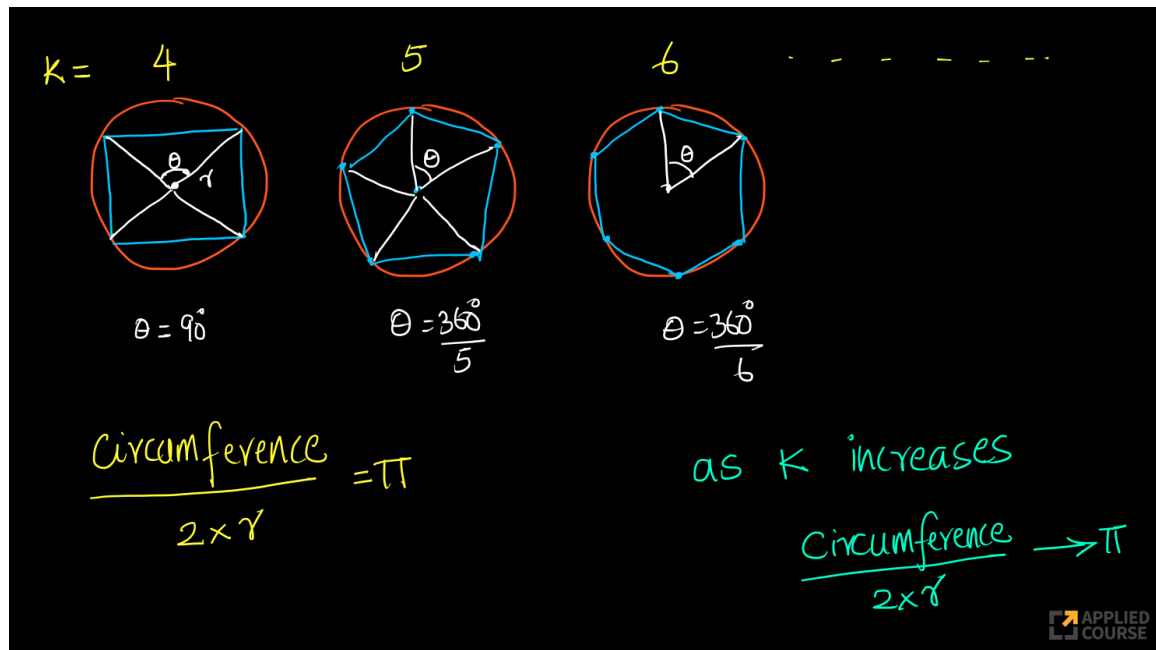 K = 4 5 6 . - - - - - ..
θ r
θ
θ
θ = 90°
θ = 360°/5
θ = 360°/6
Circumference/2×r = π
as K increases
Circumference/2×r → π
APPLIED
COURSE